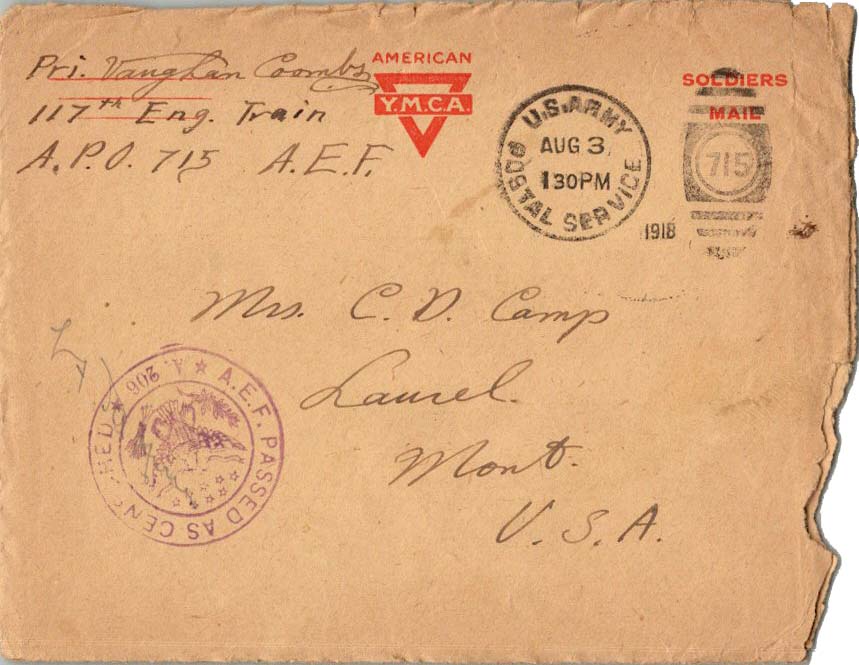 Pri. Vaughan Coombs
117th Eng. Train
A.P.O. 715 A.E.F.
AMERICAN
Y.M.C.A.
U.S. ARMY
AUG 3
1 30 PM
POSTAL SERVICE
1918
SOLDIERS
MAIL
715
Mrs. C. D. Camp
Laurel.
Mont.
U. S. A.
A.E.F. PASSED AS CENSORED
A. 206